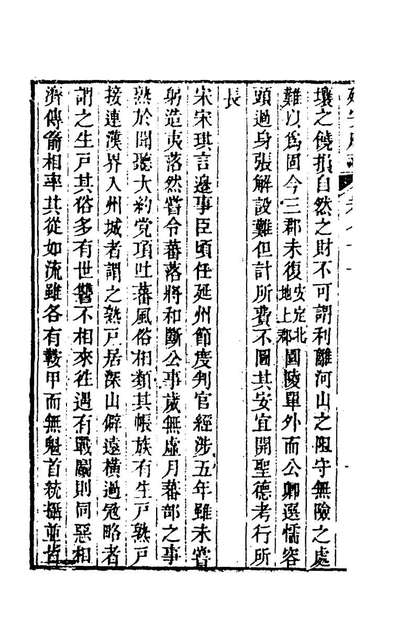 壤之饒損自然之財不可謂利離河山之阻守無險之處
難以爲固今三郡未復安定北地上郡園陵單外而公卿選懦容
頭過身張解設難但計所費不圖其安宜開聖德考行所
長
宋宋琪言邊事臣頃任延州節度判官經涉五年雖未嘗
躬造夷落然嘗令蕃落將和斷公事歲無虛月蕃部之事
熟於聞聽大約党項吐蕃風俗相類其帳族有生戶熟戶
接連漢界入州城者謂之熟戶居深山僻遠橫過寇略者
謂之生戶其俗多有世讐不相來往遇有戰鬭則同惡相
濟傳箭相率其從如流雖各有鞍甲而無魁首統攝並皆